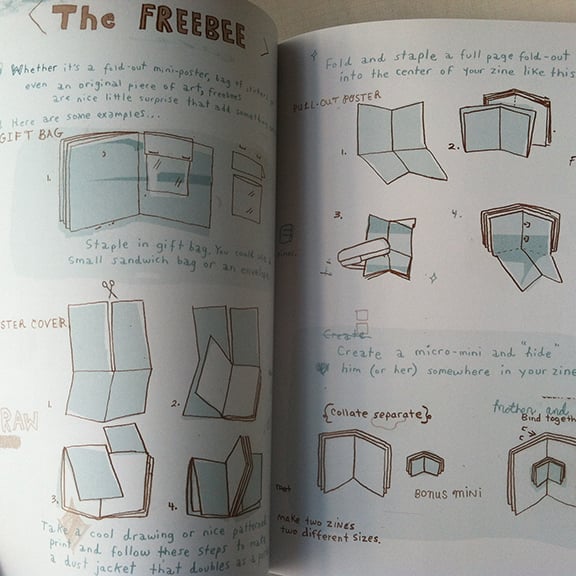 The FREEBEE
Whether it's a fold-out mini-poster, bag of
even an original piece of art, freebees
are nice little surprise that add something
Here are some examples...
GIFT BAG
1.
Staple in gift bag. You could use a
small sandwich bag or an envelope
STER COVER
1.
2.
RAW
3.
4.
Take a cool drawing or nice patterned
print and follow these steps to make
a dust jacket that doubles as a
Fold and staple a full page fold-out
into the center of your zine like this
PULL-OUT POSTER
1.
2.
F
3.
4.
Create
Create a micro-mini and "hide"
him (or her) somewhere in your zine
Mother and
{Collate separate}
Bind togeth
BONUS MINI
make two zines
two different sizes.